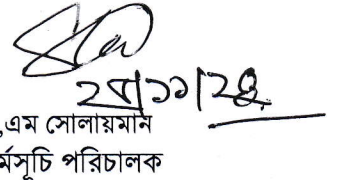 ২৮/১১/২৪
,এম সোলায়মান
র্মসূচি পরিচালক